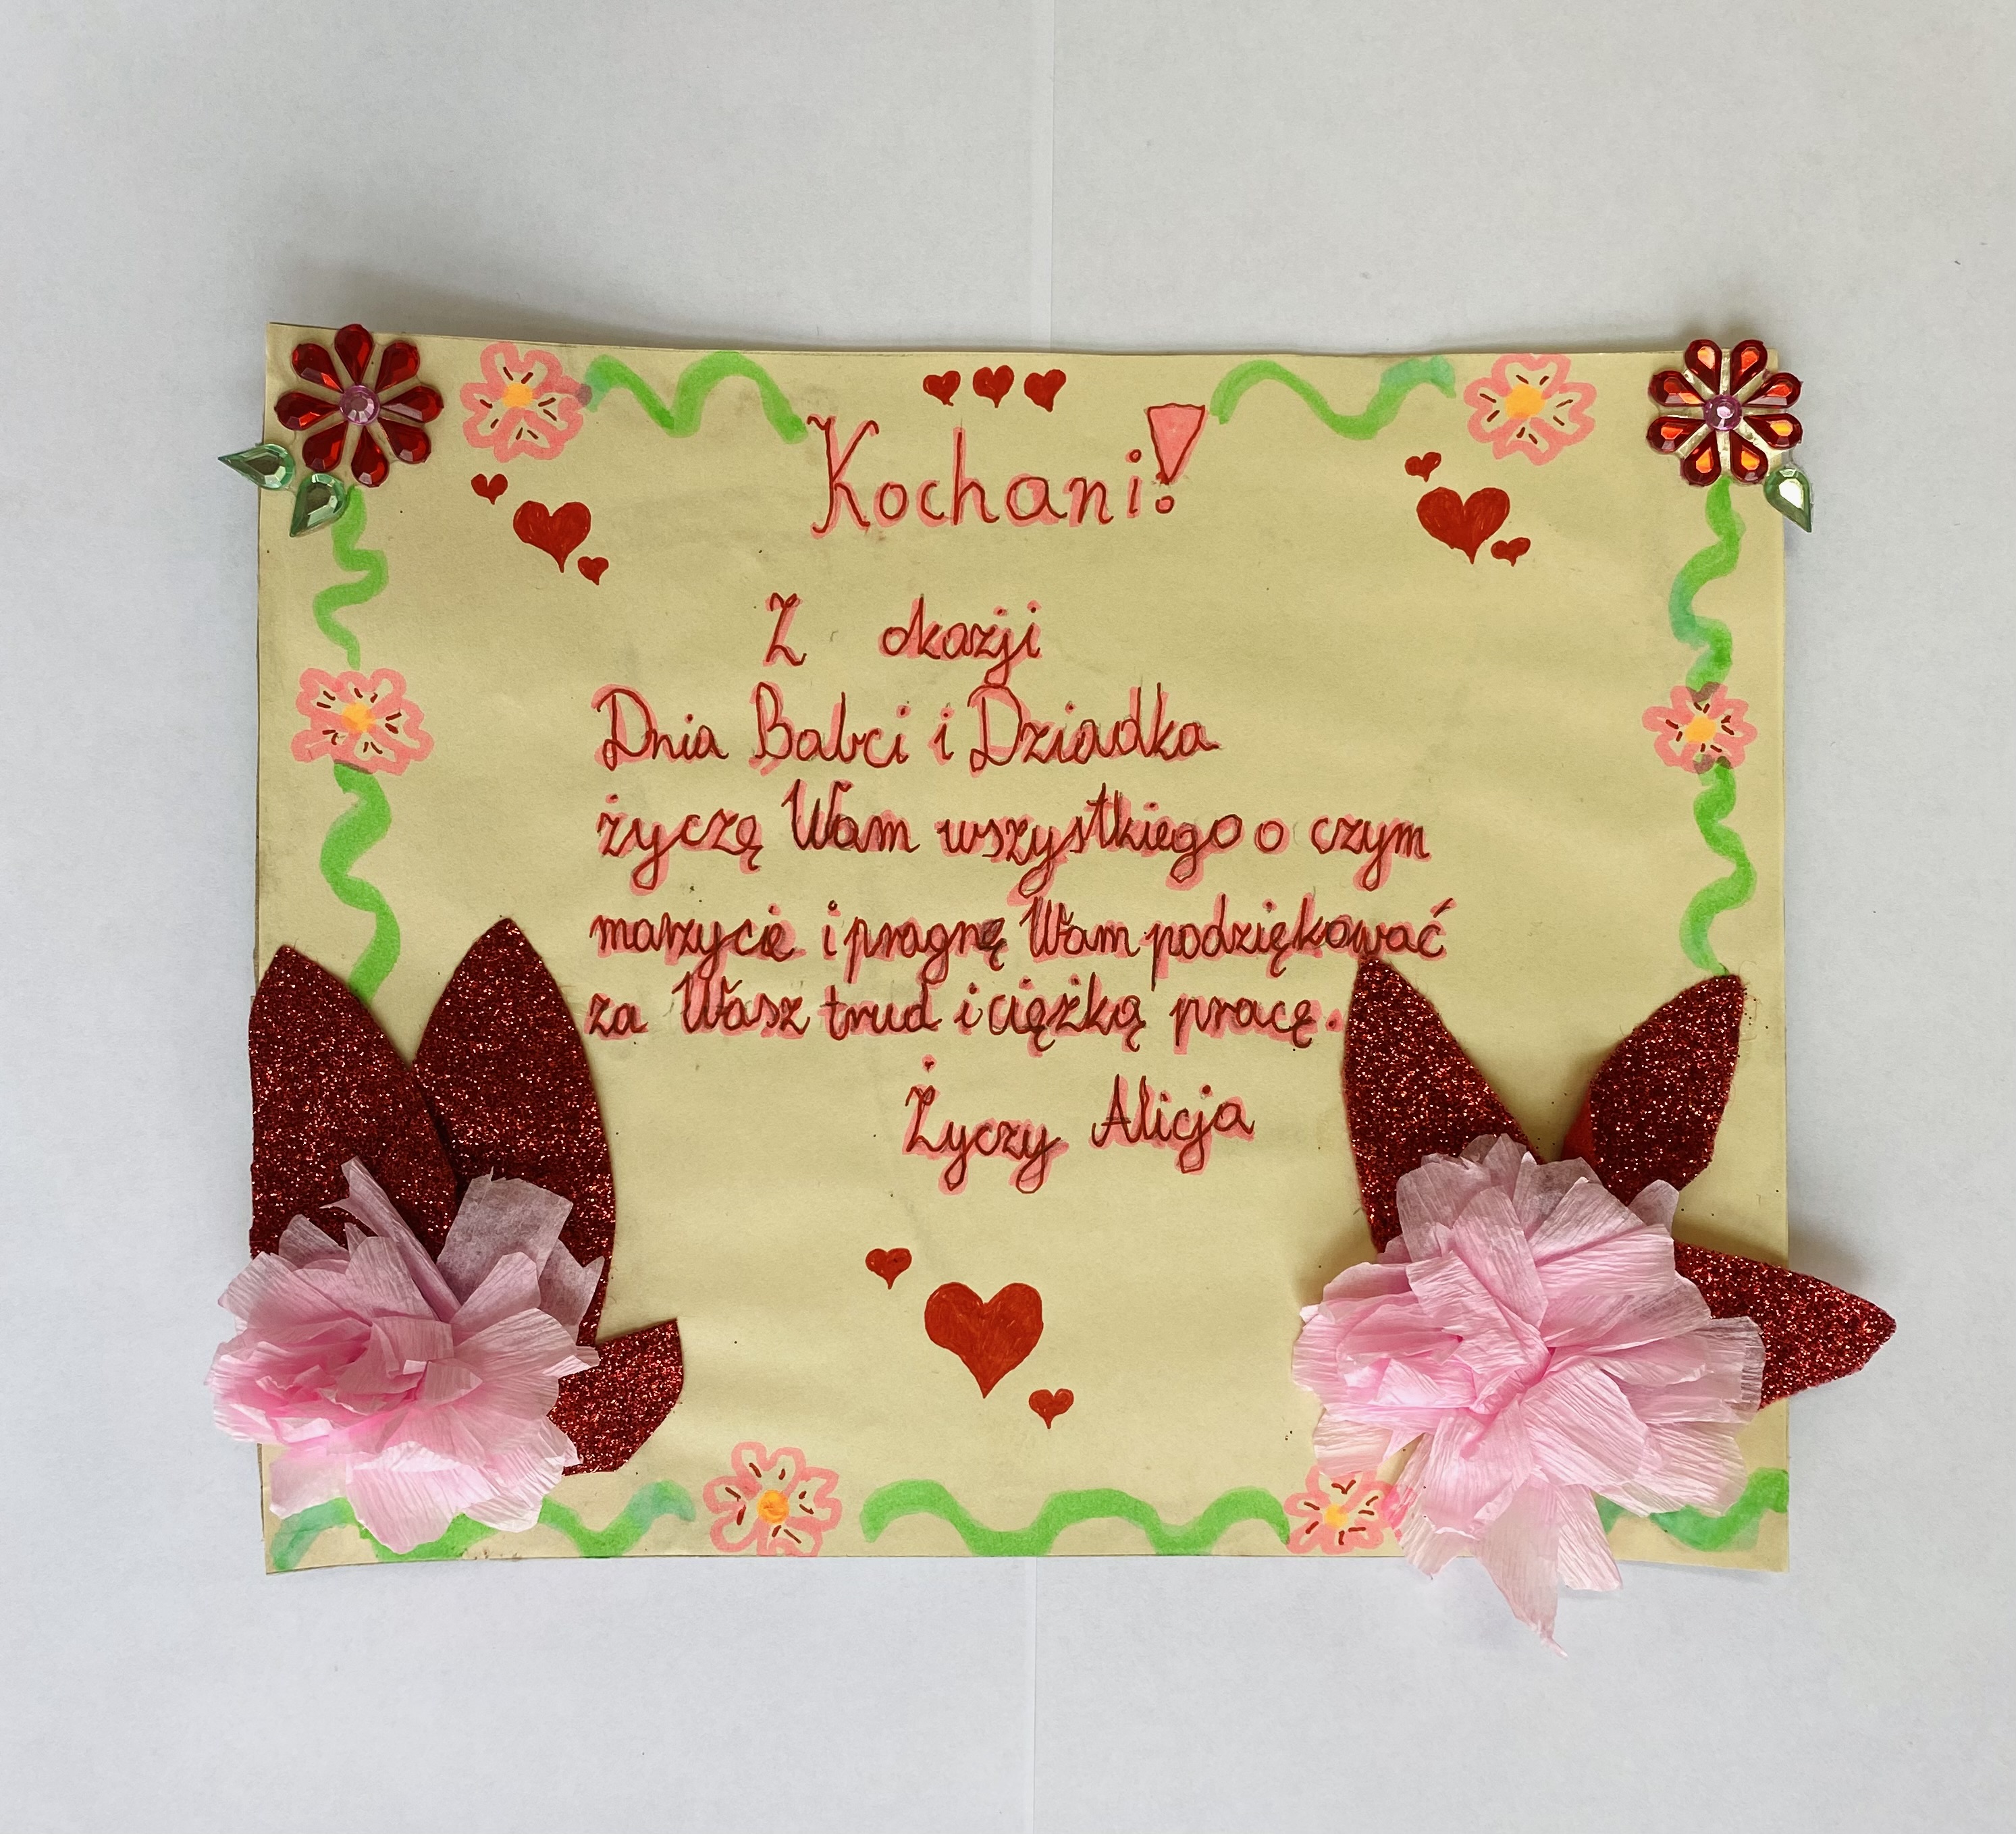 Kochani!
Z okazji
Dnia Babci i Dziadka
życzę Wam wszystkiego o czym
marzycie i pragnę Wam podziękować
za Wasz trud i ciężką pracę.
Życzy Alicja